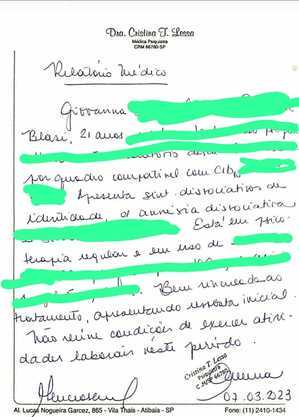 Dra. Cristina T. Lessa
Médica Psiquiatra
CRM 66780-SP
Relatório Médico
Giovanna
Blasi, 21 anos
por quadro compatível com CID
Apresenta sint. dissociativos de
identidade, e amnésia dissociativa
Está em psico
terapia regular e em uso de
Bem vinculada ao
tratamento, apresentando resposta inicial.
Não reúne condições de exercer ativi
dades laborais neste período.
Cristina T. Lessa
Psiquiatra
CRM 66780
07.03.2023
Al. Lucas Nogueira Garcez, 865 - Vila Thais - Atibaia - SP Fone: (11) 2410-1434